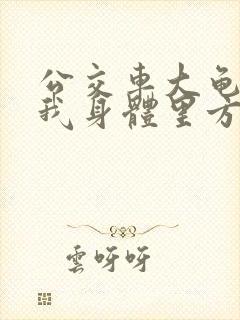 公交车大龟
我身體里方
雲呀呀